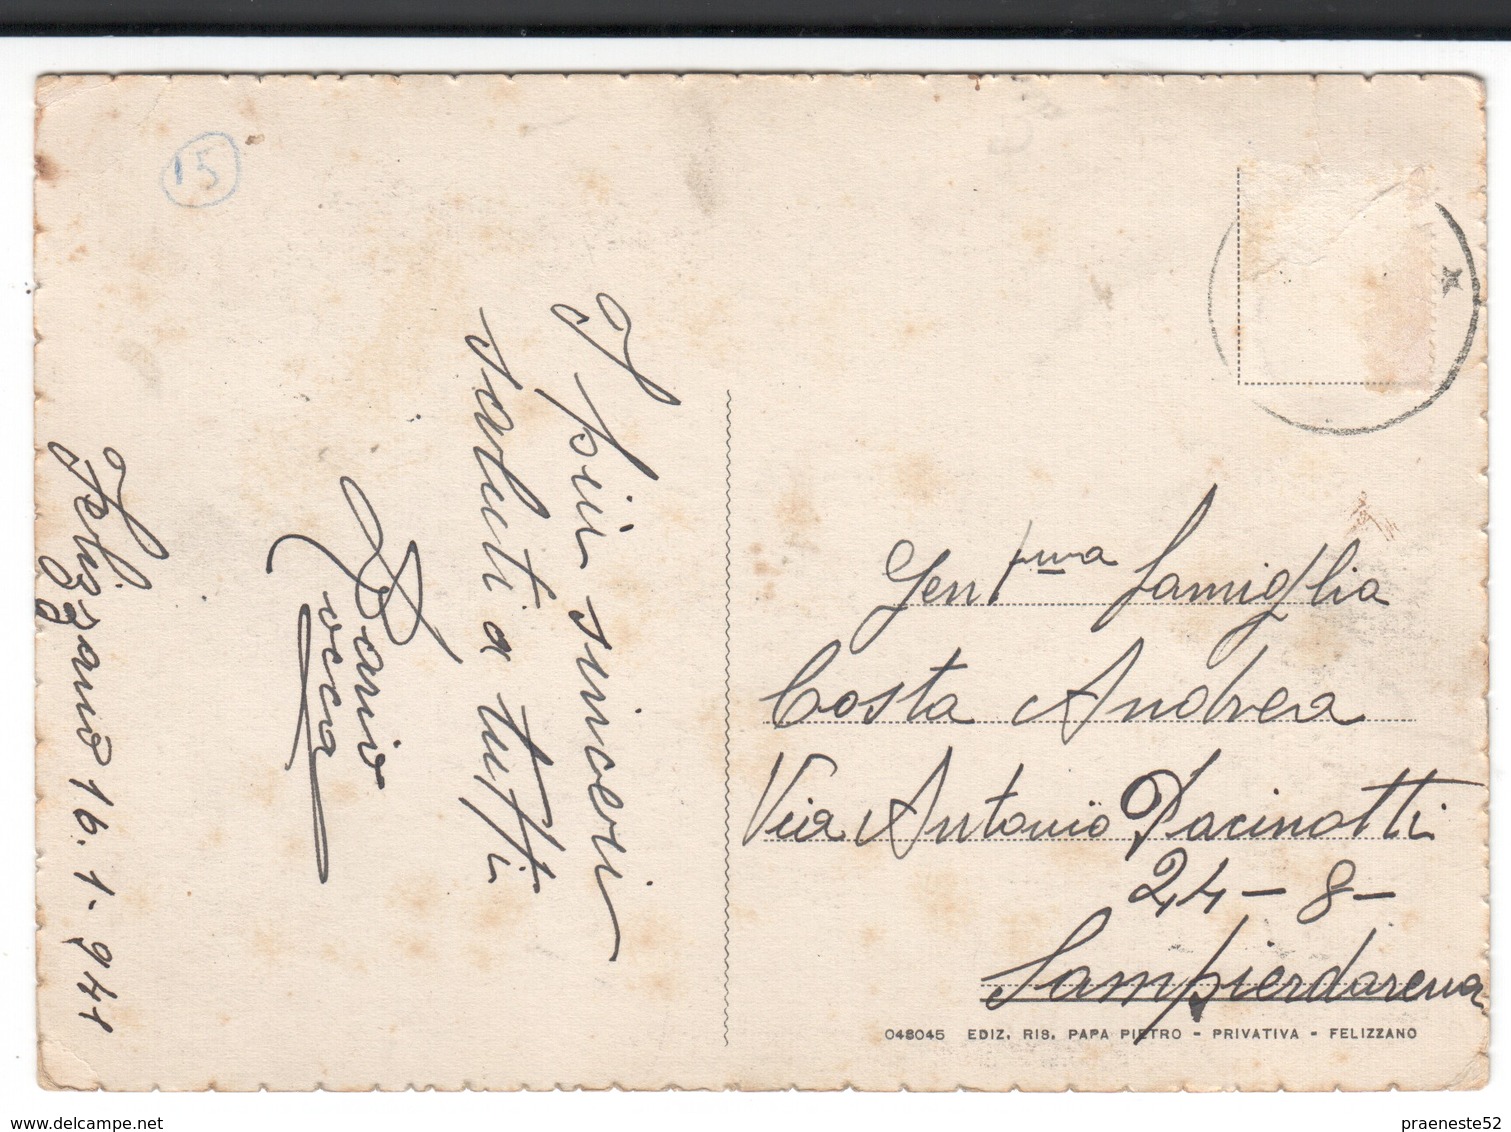 15
Felizzano 16.1.941
I più sinceri
saluti a tutti
Dario
Rocca
Gent/ma famiglia
Costa Andrea
Via Antonio Pacinotti
24-8-
Sampierdarena
048045 EDIZ. RIS. PAPA PIETRO - PRIVATIVA - FELIZZANO
www.delcampe.net
praeneste52